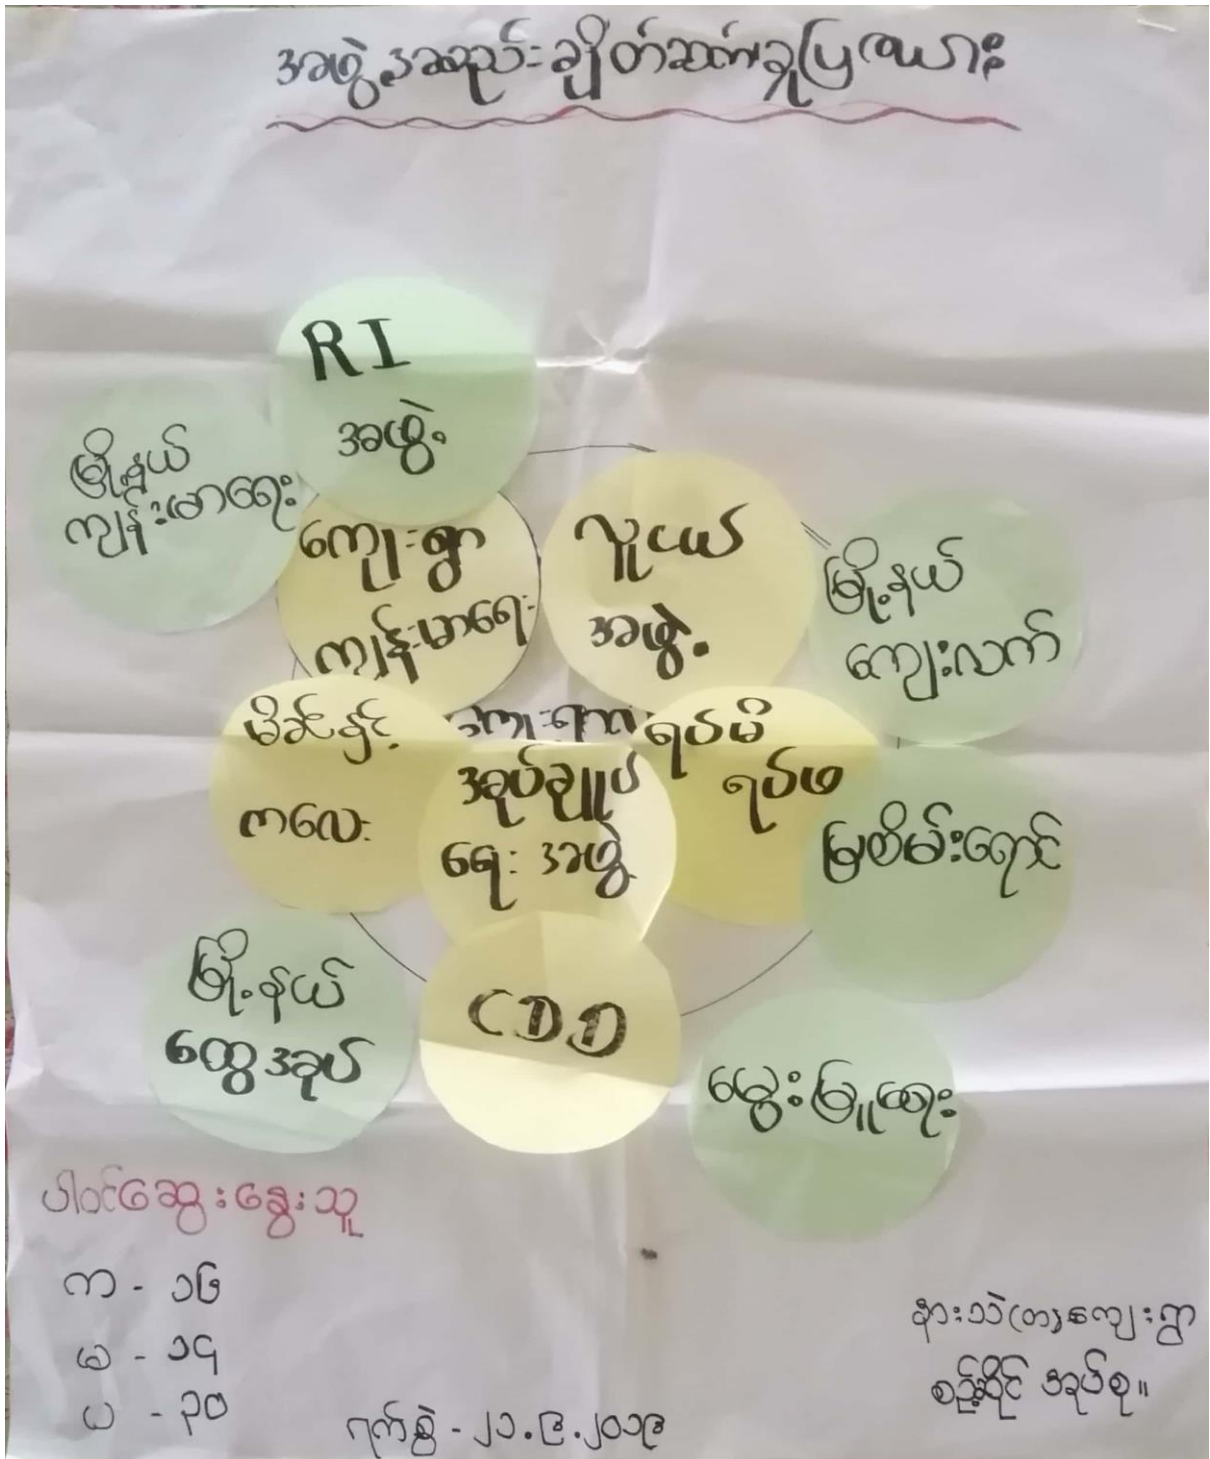 အဖွဲ့အစည်းချိတ်ဆက်မှုပြကားချပ်
RI
အဖွဲ့
မြို့နယ်
ကျန်းမာရေး
ကျေးရွာ
ကျန်းမာရေး
လူငယ်
အဖွဲ့
မြို့နယ်
ကျေးလက်
မိခင်နှင့်
ကလေး
ကျေးရွာ
အုပ်ချုပ်
ရေးအဖွဲ့
ရပ်မိ
ရပ်ဖ
မြစိမ်းရောင်
မြို့နယ်
ထွေအုပ်
CDD
မွေးမြူရေး
ပါဝင်ဆွေးနွေးသူ
က - ၁၆
မ - ၁၄
ပ - ၃၀
ရက်စွဲ - ၂၁.၉.၂၀၁၉
ကျေးရွာ
စဉ့်ဆိုင် အုပ်စု။